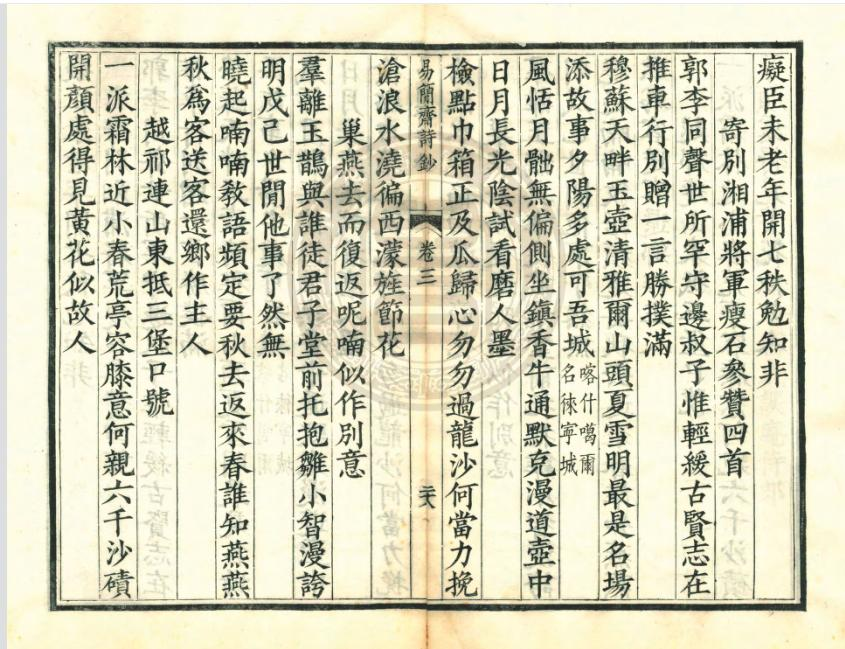 癡臣未老年開七秩勉知非
寄別湘浦將軍瘦石參贊四首
郭李同聲世所罕守邊叔子惟輕緩古賢志在
推車行別贈一言勝撲滿
穆蘇天畔玉壺清雅爾山頭夏雪明最是名場
添故事夕陽多處可吾城喀什噶爾名徠寧城
風恬月朏無偏側坐鎮香牛通默克漫道壺中
日月長光陰試看磨人墨
檢點巾箱正及瓜歸心勿勿過龍沙何當力挽
易簡齋詩鈔 卷三 二十八
滄浪水澆徧西濛旌節花
巢燕去而復返呢喃似作別意
羣離玉鵲與誰徒君子堂前托抱雛小智漫誇
明戊己世閒他事了然無
曉起喃喃敎語頻定要秋去返來春誰知燕燕
秋爲客送客還鄉作主人
越祁連山東抵三堡口號
一派霜林近小春荒亭容膝意何親六千沙磧
開顏處得見黃花似故人